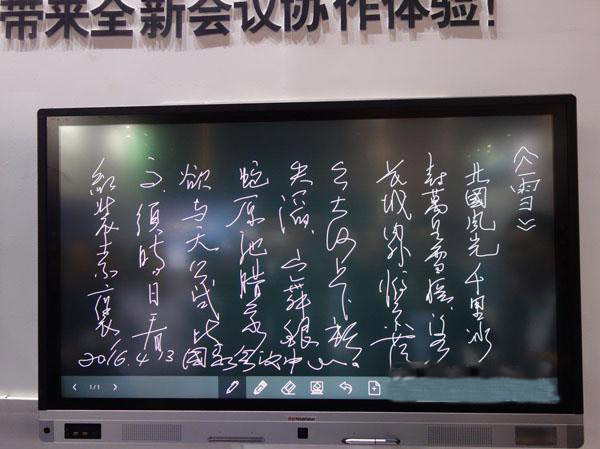 带来全新会议协作体验!
《雪》
北國風光千里冰
封萬里雪飘望
长城 惟余莽
大河上下
失滔 山舞銀
蛇原池腊象
欲与天公 比
高須晴日看
紅装素裹
2016.4.13 国家会议中心。
1/1